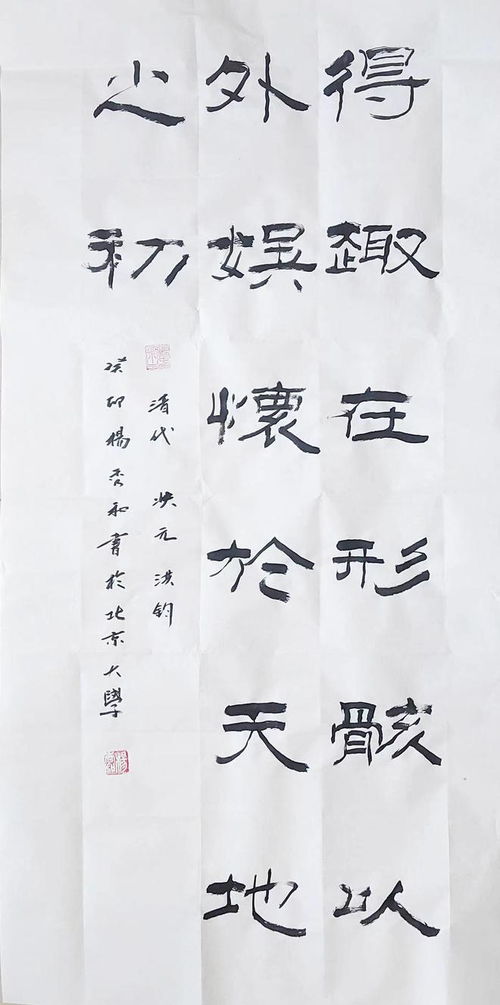 得趣在形骸以
外娱懷於天地
之初
清代 状元 洪钧
癸卯楊秀和書於北京大學